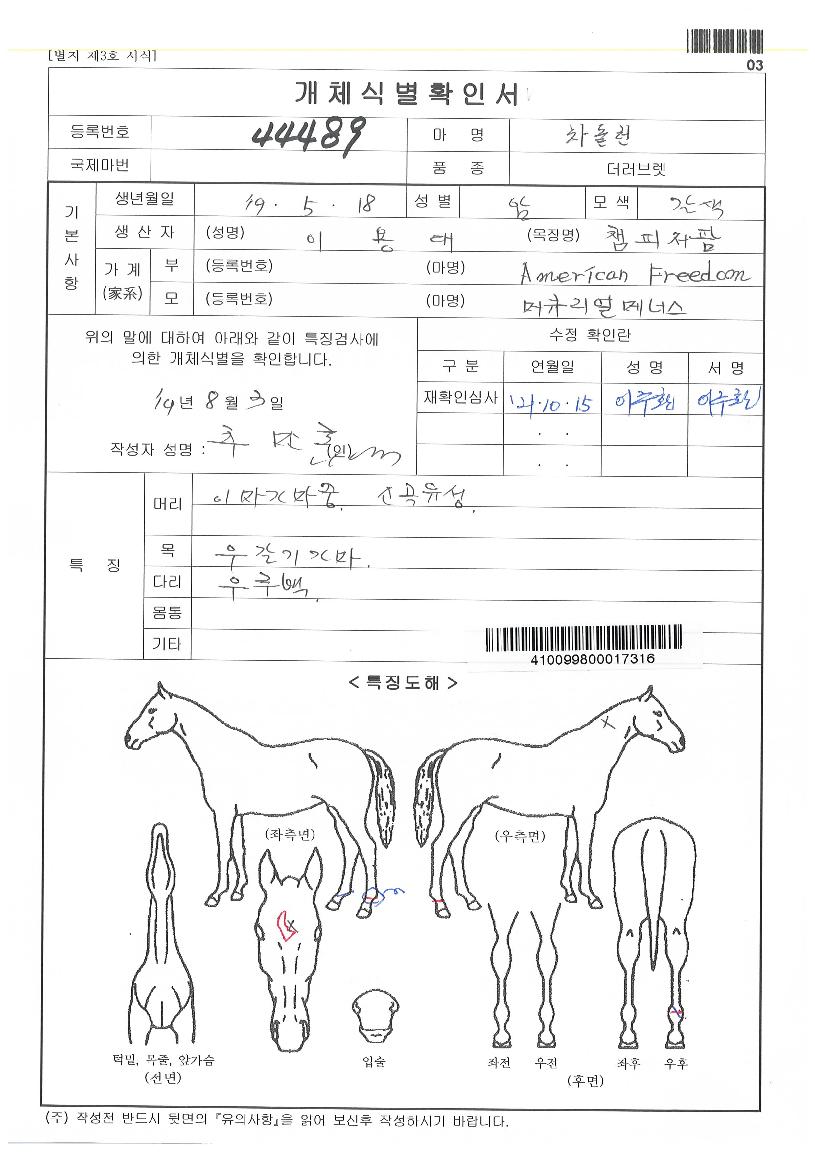 [별지 제3호 서식]
03
개체식별확인서
등록번호 44489 마 명 차돌현
국제마번 품 종 더러브렛
기본사항
생년월일 19. 5. 18 성별 암 모색 갈색
생산자 (성명) 이용대 (목장명) 챔피자팜
가계(家系) 부 (등록번호) (마명) American Freedom
모 (등록번호) (마명) 머큐리얼메너스
위의 말에 대하여 아래와 같이 특징검사에
의한 개체식별을 확인합니다.
19년 8월 3일
작성자 성명 : (인)
수정 확인란
구분 연월일 성명 서명
재확인심사 '21.10.15 이주환 이주환
. .
. .
특 징
머리 이마가마중. 유성.
목 우갈기가마.
다리 우후백.
몸통
기타
410099800017316
< 특징도해 >
(좌측면) (우측면)
턱밑, 목줄, 앞가슴
(전면)
입술
좌전 우전 좌후 우후
(후면)
(주) 작성전 반드시 뒷면의 『유의사항』을 읽어 보신후 작성하시기 바랍니다.